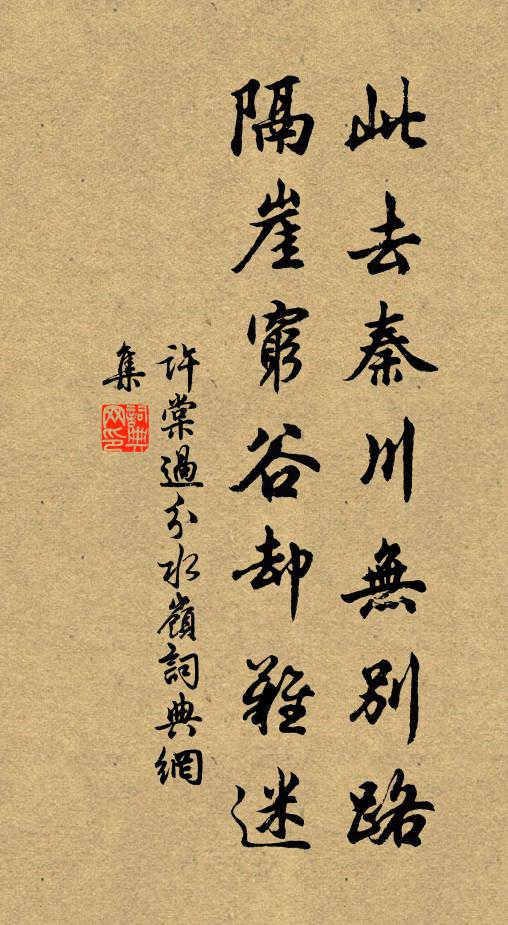 此去秦川無別路
隔崖窮谷却難迷
許棠過分水嶺詞典網
集
詞典
网印